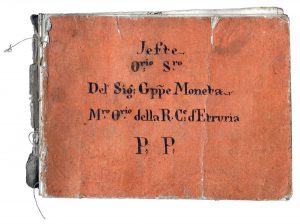 Jefte
Orio Sro
Del Sig: Gppe Moneta
Mro Orio della R. Ce. d'Etruria
P. P.